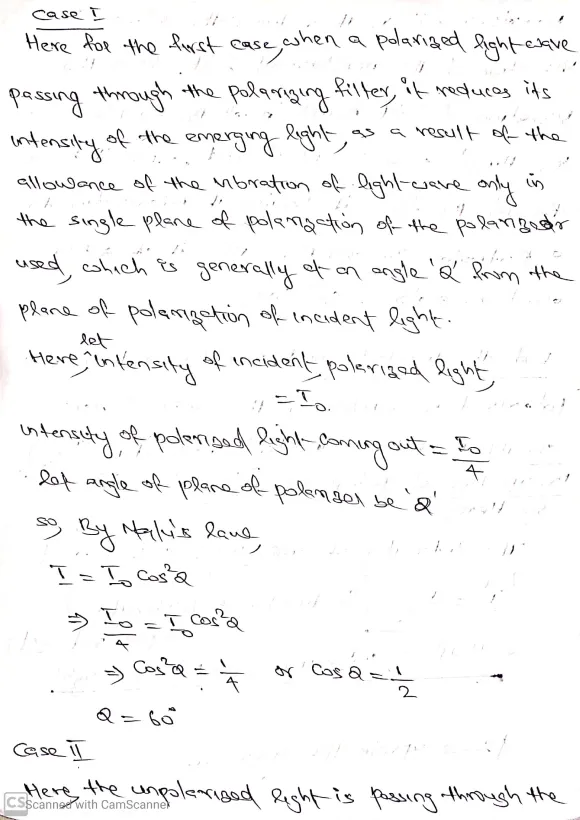 Case I
Here for the first case, when a polarized light-wave
passing through the polarizing filter, it reduces its
intensity of the emerging light, as a result of the
allowance of the vibration of light-wave only in
the single plane of polarization of the polarizer
used, which is generally at an angle 'Q' from the
plane of polarization of incident light.
let
Here, intensity of incident polarized light,
= I₀.
intensity of polarised light coming out = I₀/4
let angle of plane of polariser be 'Q'
so, By Malu's law,
I = I₀ Cos²Q
⇒ I₀/4 = I₀ Cos²Q
⇒ Cos²Q = 1/4 or Cos Q = 1/2
Q = 60°
Case II
Here, the unpolarised light is passing through the
CS Scanned with CamScanner